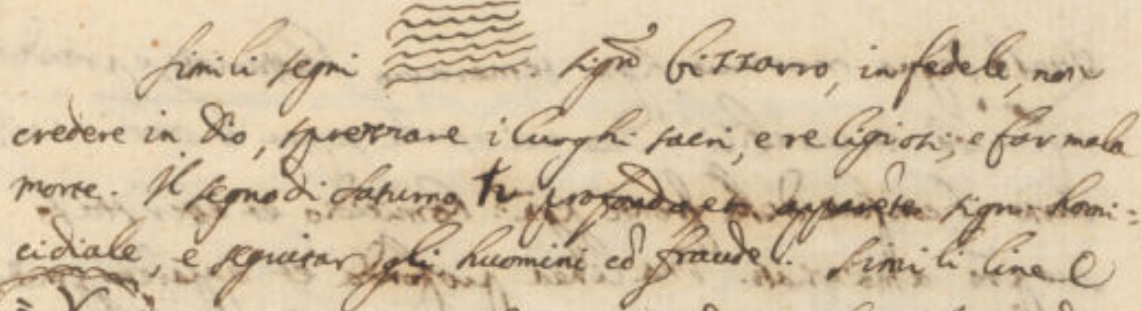 simili segni sign̄ bizzarro, infedele, non
credere in Dio, sprezzare i luoghi sacri, e religiosi, e far mala
morte. Il segno di Saturno ♄ profondo et apparēte sign. homi=
cidiale, e seguitar gli huomini cō fraude. Simili linee